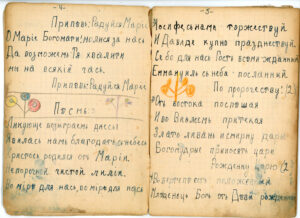 -4-
Приповъ: Радуйся, Маріе
О Маріе Богомати, молися за насъ
Да возможемъ Тя хвалити
мы на всякій часъ.
Приповъ: Радуйся, Маріе
Пѣснь:
Ликующе возиграимъ днесь!
Явилась намъ благодать съ небесъ
Христосъ родился отъ Маріи
Непорочной чистой лиліи.
Во миръ для насъ, во миръ для насъ
-5-
Іосифе съ намъ торжествуй
И Давиде купно праздненствуй
Се бо для насъ Гость всеми жданный
Еммануилъ съ неба посланный
По пророчеству: (2)
Отъ востока поспѣшая
И во Вифлеемъ притекая
Злато ливанъ и смирну дары
Богомудрые приносятъ дары
Рожденну Царю (2
Въ вертепѣ положенный
Младенецъ Богъ отъ Дѣвы рожденный